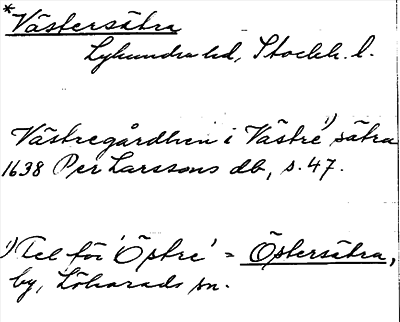 *Västersätra
Lyhundra hd, Stockh. l.
Västregårdhen i Västre¹⁾ sätra
1638 Per Larssons db, s. 47.
¹⁾ Fel för 'Östre' = Östersätra,
by, Lohärads sn.